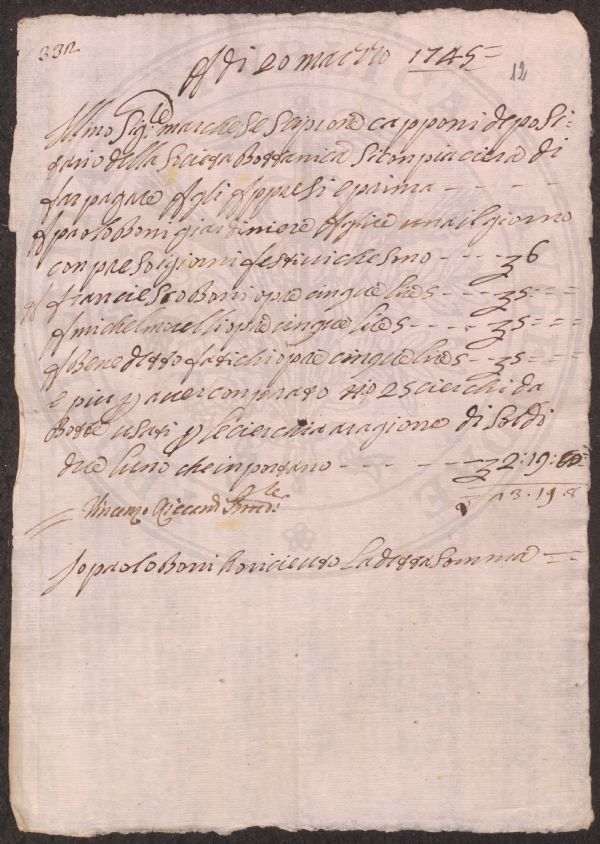 332
A di 20 marzzo 1745 =
12
Illmo Sig.le marchese Scipione capponi deposi:
tario della Sociata Bottanica Si conpiaciera di
far pagare A gli Appresi e prima - - - -
A paolo Boni giardiniere una il giorno
conpreso i giorni festivi che sono - - - - 6
A Franciesco Boni opre cinque lire 5 - - - 5 = =
A michel opre cinque lire 5 - - - - 5 = = =
A Benedetto fatichi opre cinque lire 5 - - 5 = =
e piu p aver conprato no 25 cierchi da
Botte usati p le cierchia a ragione di Soldi
due l'uno che inportano - - - - - 2:19:
Vincenzo Riccardi
13.19.8
Io paolo Boni o riceuto La detta Somma = =